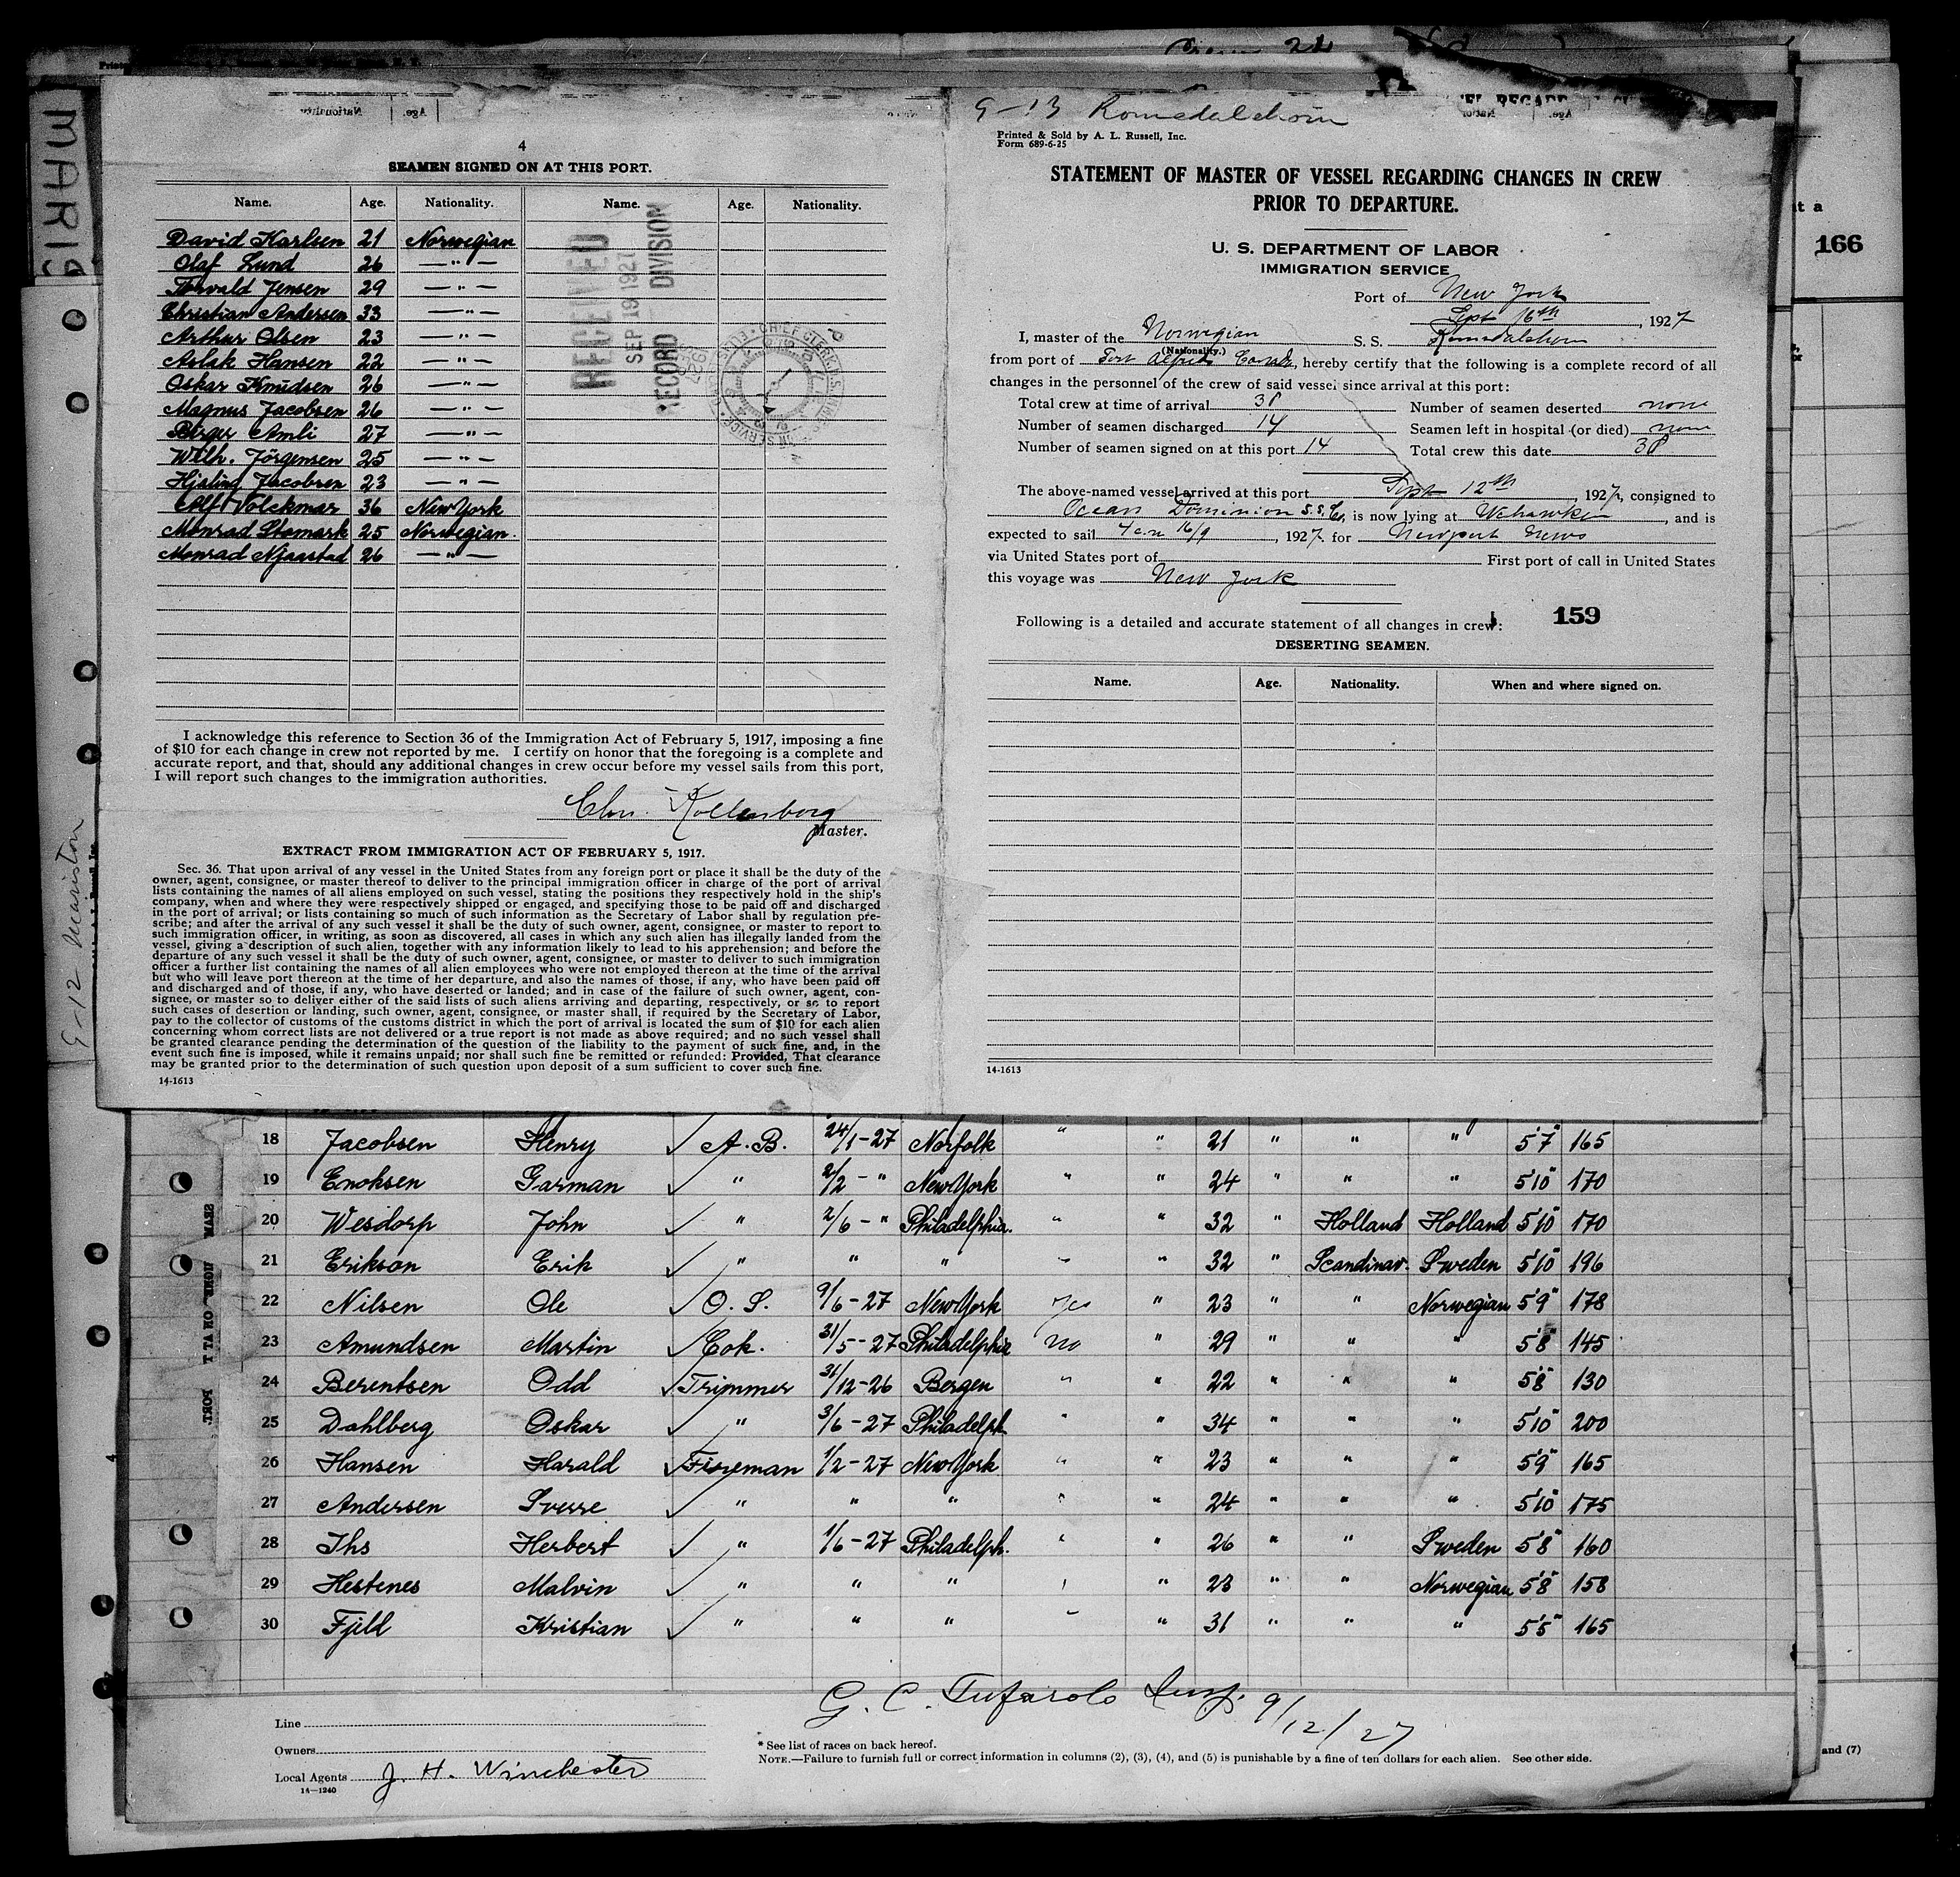 MARIS
9-12 Mariston
4
SEAMEN SIGNED ON AT THIS PORT.
Name. Age. Nationality. Name. Age. Nationality.
David Karlsen 21 Norwegian
Olaf Lund 26 — " —
Torvald Jensen 29 — " —
Christian Andersen 33 — " —
Arthur Olsen 23 — " —
Aslak Hansen 22 — " —
Oskar Knudsen 26 — " —
Magnus Jacobsen 26 — " —
Birger Amli 27 — " —
Wilh. Jörgensen 25 — " —
Hjalmar Jacobsen 23 — " —
Alf Volckmar 36 New York
Monrad Stamark 25 Norwegian.
Monrad Njaastad 26 — " —
RECEIVED
SEP 19 1927
RECORD DIVISION
I acknowledge this reference to Section 36 of the Immigration Act of February 5, 1917, imposing a fine
of $10 for each change in crew not reported by me. I certify on honor that the foregoing is a complete and
accurate report, and that, should any additional changes in crew occur before my vessel sails from this port,
I will report such changes to the immigration authorities.
Chr. Kollenborg
Master.
EXTRACT FROM IMMIGRATION ACT OF FEBRUARY 5, 1917.
Sec. 36. That upon arrival of any vessel in the United States from any foreign port or place it shall be the duty of the
owner, agent, consignee, or master thereof to deliver to the principal immigration officer in charge of the port of arrival
lists containing the names of all aliens employed on such vessel, stating the positions they respectively hold in the ship's
company, when and where they were respectively shipped or engaged, and specifying those to be paid off and discharged
in the port of arrival; or lists containing so much of such information as the Secretary of Labor shall by regulation pre-
scribe; and after the arrival of any such vessel it shall be the duty of such owner, agent, consignee, or master to report to
such immigration officer, in writing, as soon as discovered, all cases in which any such alien has illegally landed from the
vessel, giving a description of such alien, together with any information likely to lead to his apprehension; and before the
departure of any such vessel it shall be the duty of such owner, agent, consignee, or master to deliver to such immigration
officer a further list containing the names of all alien employees who were not employed thereon at the time of the arrival
but who will leave port thereon at the time of her departure, and also the names of those, if any, who have been paid off
and discharged and of those, if any, who have deserted or landed; and in case of the failure of such owner, agent, con-
signee, or master so to deliver either of the said lists of such aliens arriving and departing, respectively, or so to report
such cases of desertion or landing, such owner, agent, consignee, or master shall, if required by the Secretary of Labor,
pay to the collector of customs of the customs district in which the port of arrival is located the sum of $10 for each alien
concerning whom correct lists are not delivered or a true report is not made as above required; and no such vessel shall
be granted clearance pending the determination of the question of the liability to the payment of such fine, and, in the
event such fine is imposed, while it remains unpaid; nor shall such fine be remitted or refunded: Provided, That clearance
may be granted prior to the determination of such question upon deposit of a sum sufficient to cover such fine.
14-1613
9-13 Romsdalshorn
Printed & Sold by A. L. Russell, Inc.
Form 689-6-25
STATEMENT OF MASTER OF VESSEL REGARDING CHANGES IN CREW
PRIOR TO DEPARTURE.
U. S. DEPARTMENT OF LABOR
IMMIGRATION SERVICE
Port of New York
Sept 16th, 1927
I, master of the Norwegian S. S. Romsdalshorn
(Nationality.)
from port of Port Alfred Canada, hereby certify that the following is a complete record of all
changes in the personnel of the crew of said vessel since arrival at this port:
Total crew at time of arrival 38 Number of seamen deserted none
Number of seamen discharged 14 Seamen left in hospital (or died) none
Number of seamen signed on at this port 14 Total crew this date 38
The above-named vessel arrived at this port Sept 12th, 1927, consigned to
Ocean Dominion S.S. Co, is now lying at Wehawken, and is
expected to sail 16/9, 1927. for Newport News
via United States port of First port of call in United States
this voyage was New York
Following is a detailed and accurate statement of all changes in crew: 159
DESERTING SEAMEN.
Name. Age. Nationality. When and where signed on.
14-1613
166
18 Jacobsen Henry ✓ A.B. 24/1-27 Norfolk " " 21 " " " 5'7" 165
19 Enoksen Garman ✓ " 2/2 - " New York " " 24 " " " 5'10" 170
20 Wesdorp John ✓ " 2/6 - " Philadelphia. " " 32 " Holland Holland 5'10" 170
21 Erikson Erik ✓ " " " " " 32 " Scandinav. Sweden 5'10" 196
22 Nilsen Ole ✓ O.S. 9/6-27 New York Yes " 23 " " Norwegian 5'9" 178
23 Amundsen Martin ✓ Cok. 31/5-27 Philadelphia No " 29 " " " 5'8" 145
24 Berentsen Odd ✓ Trimmer 31/12-26 Bergen " " 22 " " " 5'8" 130
25 Dahlberg Oskar ✓ " 3/6-27 Philadelph. " " 34 " " " 5'10" 200
26 Hansen Harald ✓ Fireman 1/2-27 New York " " 23 " " " 5'9" 165
27 Andersen Sverre ✓ " " " " " 24 " " " 5'10" 175
28 Ihs Herbert ✓ " 1/6-27 Philadelph. " " 26 " " Sweden 5'8" 160
29 Hestenes Malvin ✓ " " " " " 23 " " Norwegian 5'8" 158
30 Fjeld Kristian ✓ " " " " " 31 " " " 5'5" 165
G. C. Tufarolo Insp. 9/12/27
Line
Owners
Local Agents J. H. Winchester
14-1240
* See list of races on back hereof.
NOTE.—Failure to furnish full or correct information in columns (2), (3), (4), and (5) is punishable by a fine of ten dollars for each alien. See other side.
and (7)